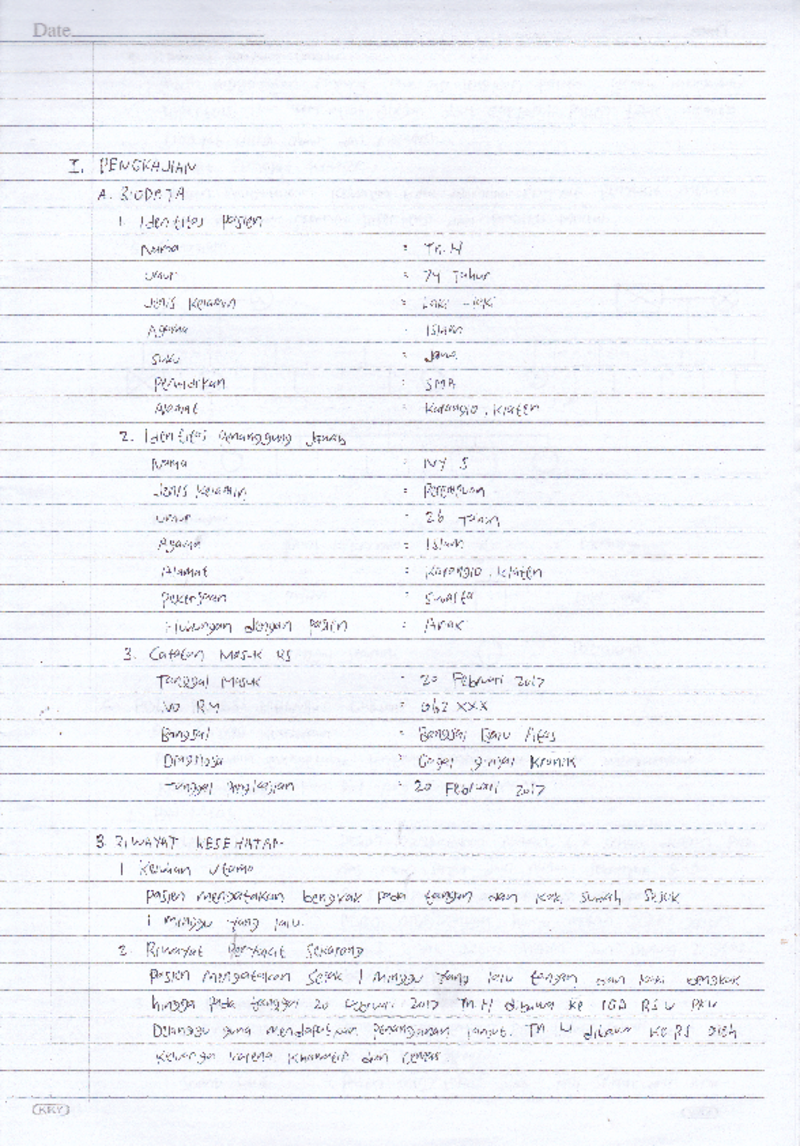 Date
I. PENGKAJIAN
A. BIODATA
1. Identitas pasien
Nama : Tn. H
Umur : 74 Tahun
Jenis Kelamin : Laki - laki
Agama : Islam
Suku : Jawa
Pendidikan : SMA
Alamat : Klaten
2. Identitas Penanggung Jawab
Nama : NY S
Jenis Kelamin : Perempuan
Umur : 26 Tahun
Agama : Islam
Alamat : Klaten
Pekerjaan : Swasta
Hubungan dengan pasien : Anak
3. Catatan Masuk RS
Tanggal Masuk : 20 Februari 2017
No RM : 062 XXX
Bangsal : Bangsal
Diagnosa : Gagal ginjal Kronik
Tanggal Pengkajian : 20 Februari 2017
B. RIWAYAT KESEHATAN
1 Keluhan Utama
Pasien mengatakan bengkak pada tangan dan kaki sudah sejak
1 minggu yang lalu.
2. Riwayat Penyakit Sekarang
Pasien mengatakan sejak 1 minggu yang lalu tangan dan kaki bengkak
hingga pada tanggal 20 Februari 2017 Tn H dibawa ke IGD RSU PKU
Delanggu guna mendapatkan penanganan lanjut. Tn H dibawa ke RS oleh
keluarga karena khawatir dan cemas
KKY